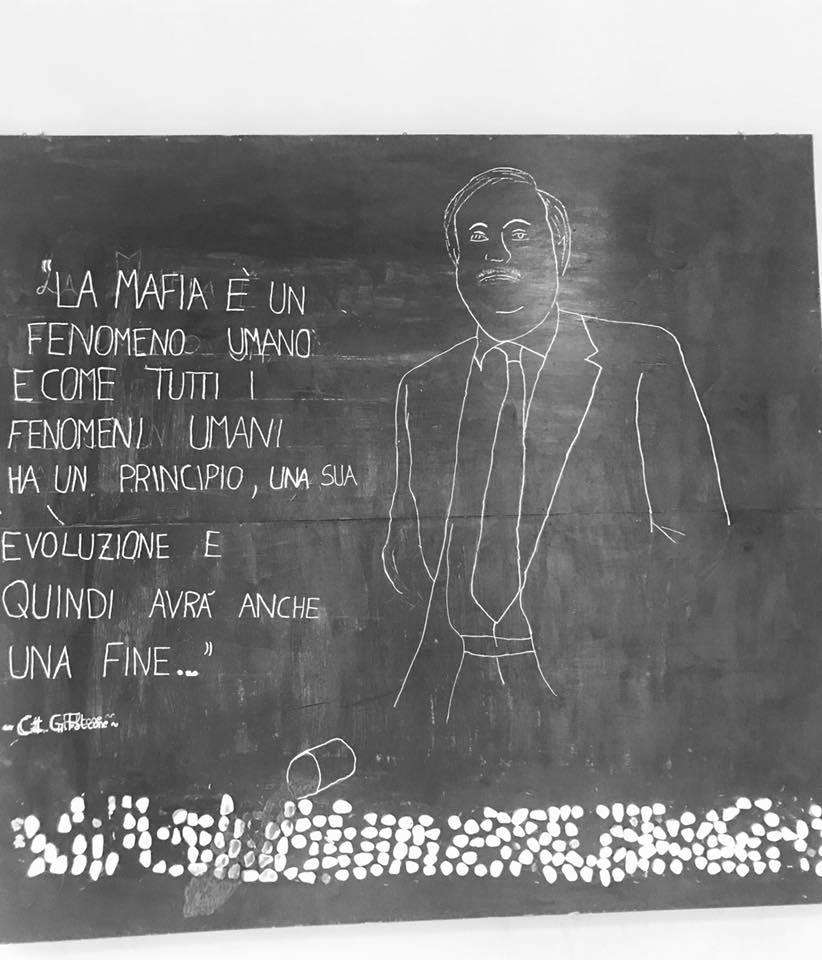 "LA MAFIA È UN
FENOMENO UMANO
E COME TUTTI I
FENOMENI UMANI
HA UN PRINCIPIO, UNA SUA
EVOLUZIONE E
QUINDI AVRÁ ANCHE
UNA FINE..."
~ Cit. G. Falcone ~